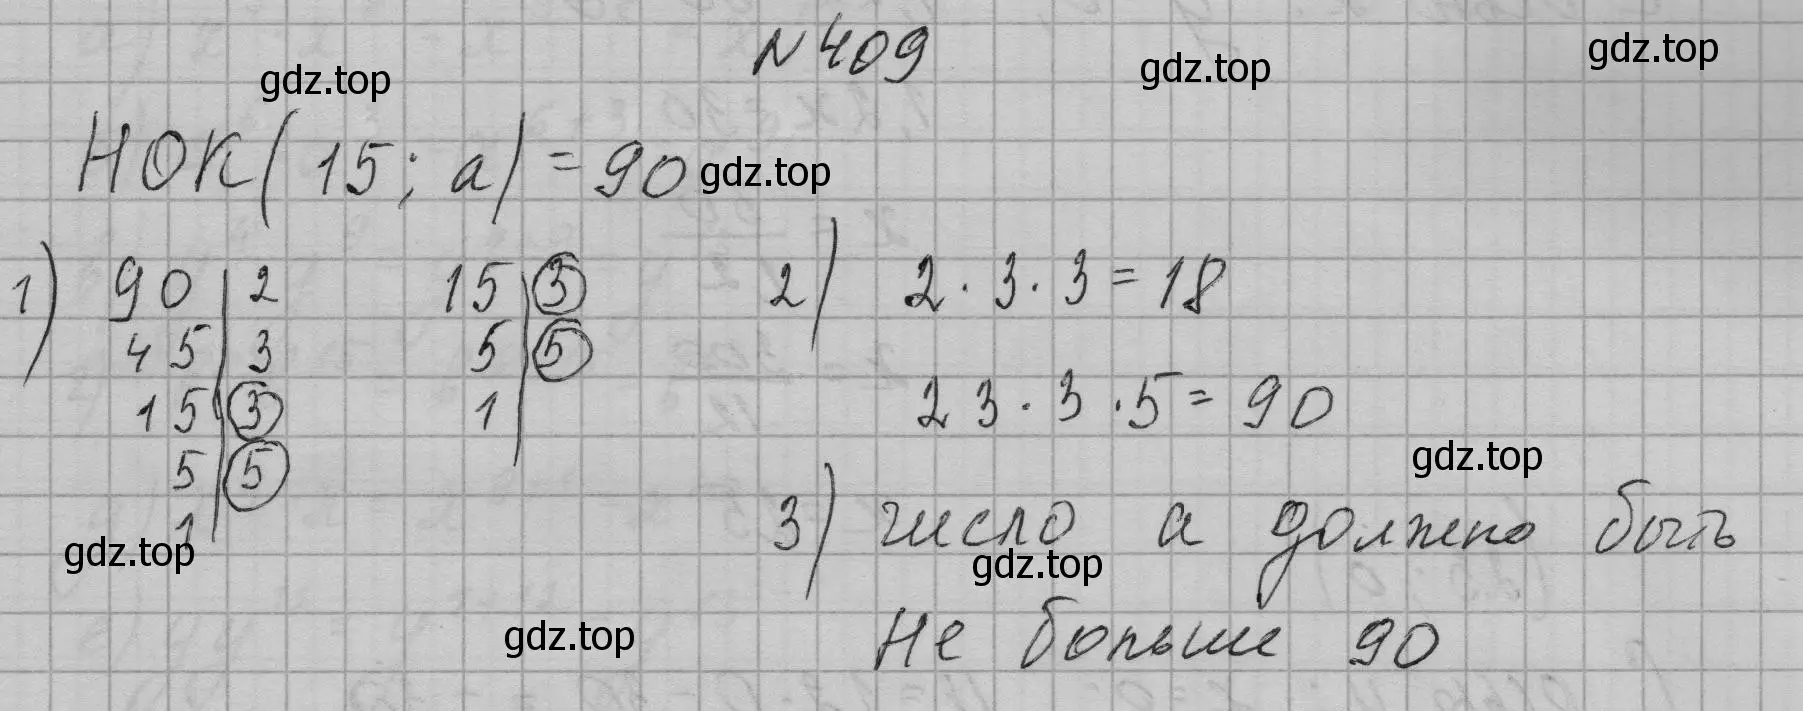 N 409
gdz.top
gdz.top
gdz.top
НОК(15; a) = 90
gdz.top
1) 90 | 2
45 | 3
15 | 3
5 | 5
1
15 | 3
5 | 5
1
gdz.top
2) 2 · 3 · 3 = 18
2 3 · 3 · 5 = 90
gdz.top
3) число а должно быть
gdz.top
не больше 90
gdz.top